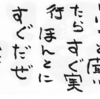 たらすぐ実
行 ほんとに
すぐだぜ